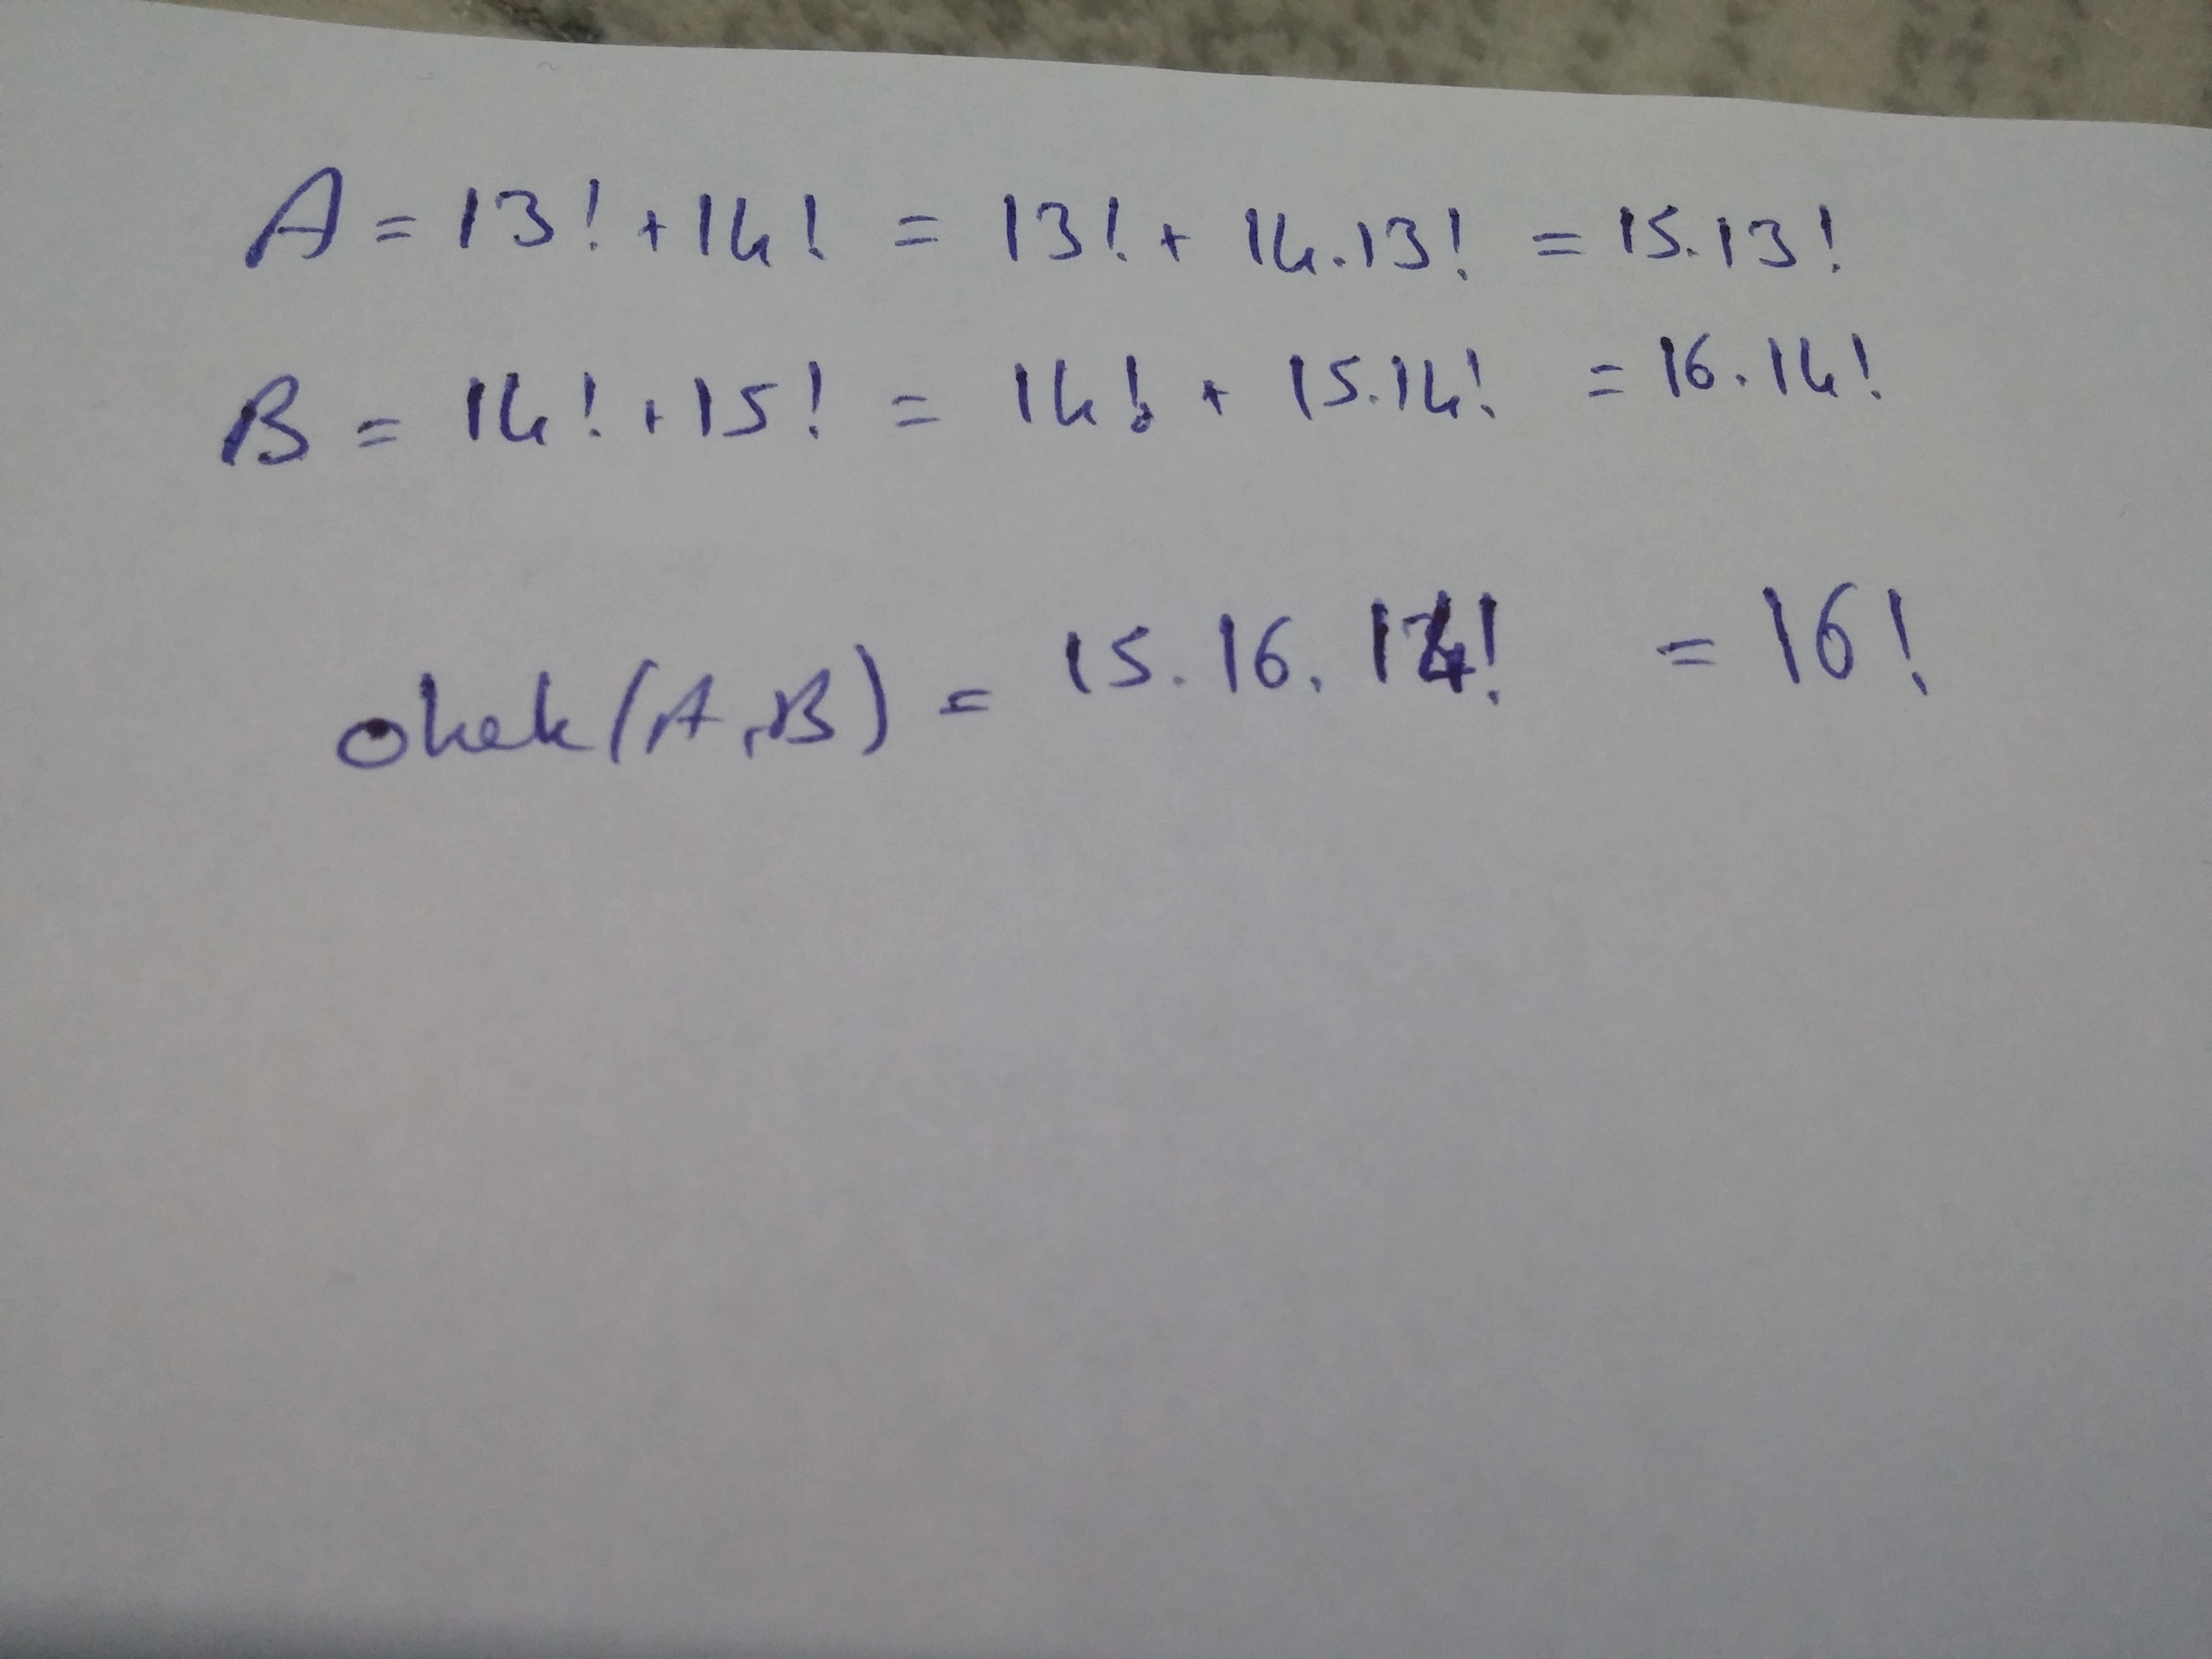 A = 13! + 14! = 13! + 14.13! = 15.13!
B = 14! + 15! = 14! + 15.14! = 16.14!
okek(A,B) = 15.16.14! = 16!